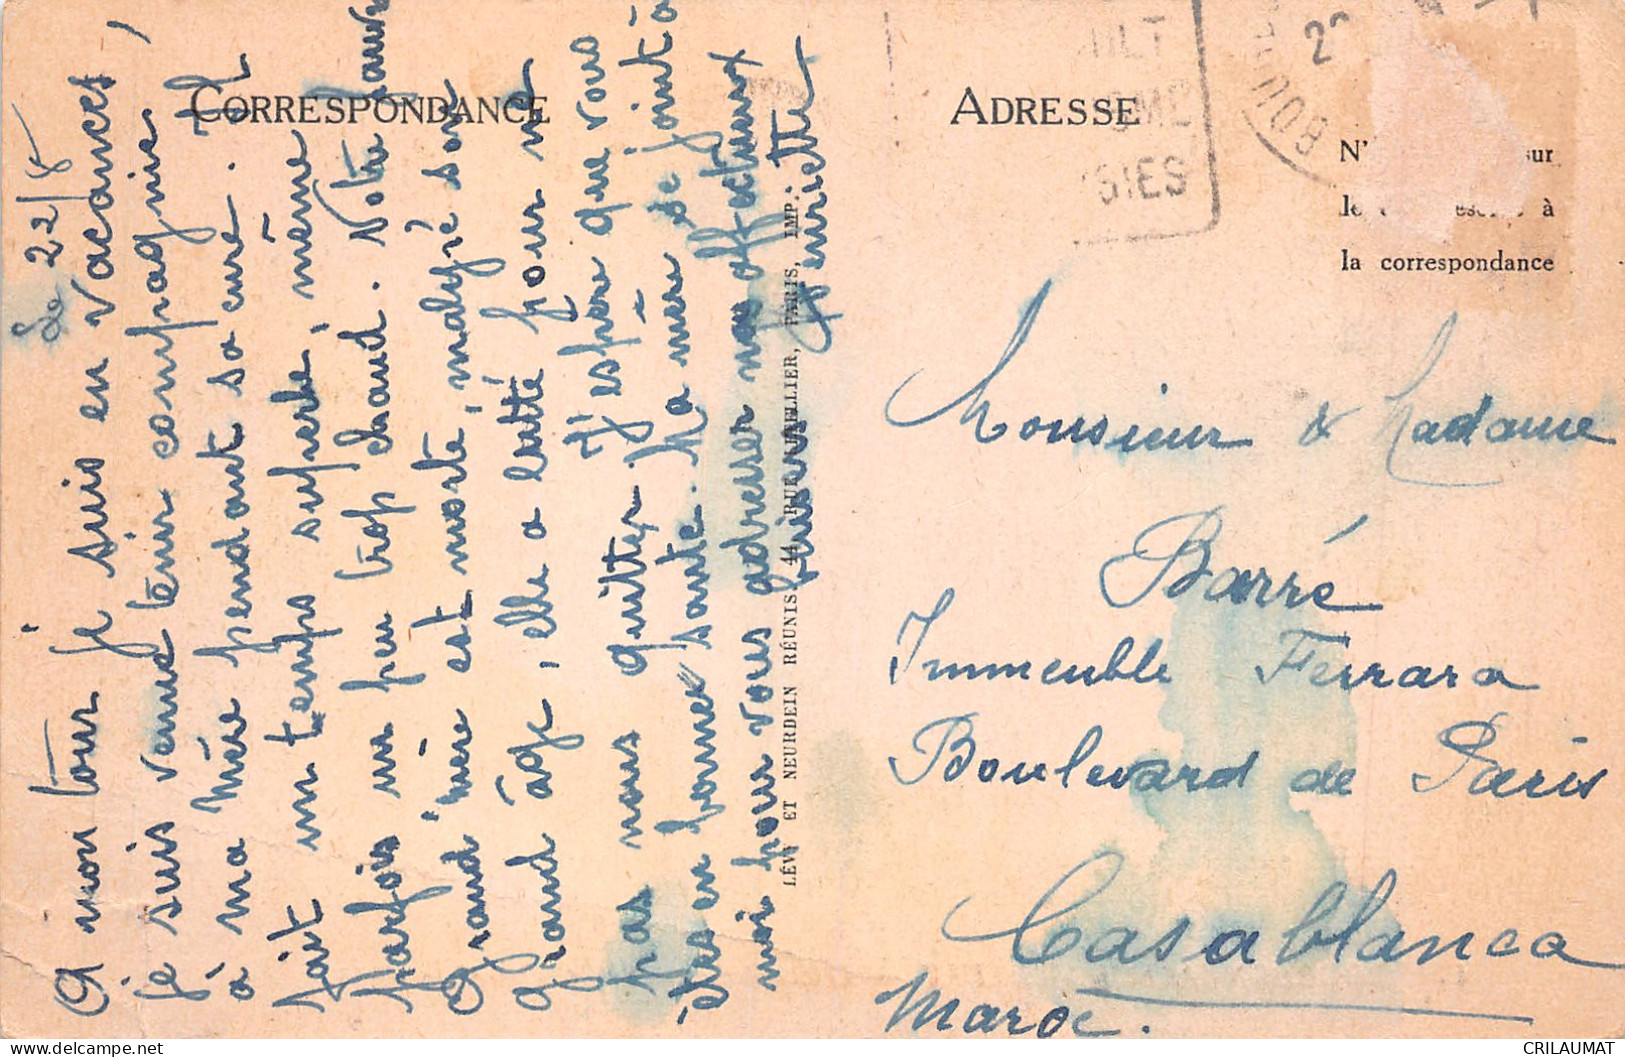 CORRESPONDANCE
le 22/8
A mon tour je suis en vacances,
je suis venue tenir compagnie
à ma Mère pendant sa cure. Il
fait un temps superbe, même
parfois un peu trop chaud. Notre pauvre
Grand'mère est morte, malgré son
grand âge, elle a lutté pour ne
pas nous quitter. J'espère que vous
êtes en bonne santé. Ma mère se joint à
moi pour vous adresser nos affectueux
baisers Henriette
LÉVY ET NEURDEIN RÉUNIS, 44, RUE LETELLIER, PARIS, IMP.
ADRESSE
ULT
OME
GIES
BOURB
2
N' sur
la correspondance
Monsieur & Madame
Barré
Immeuble Ferrara
Boulevard de Paris
Casablanca
Maroc.
CRILAUMAT